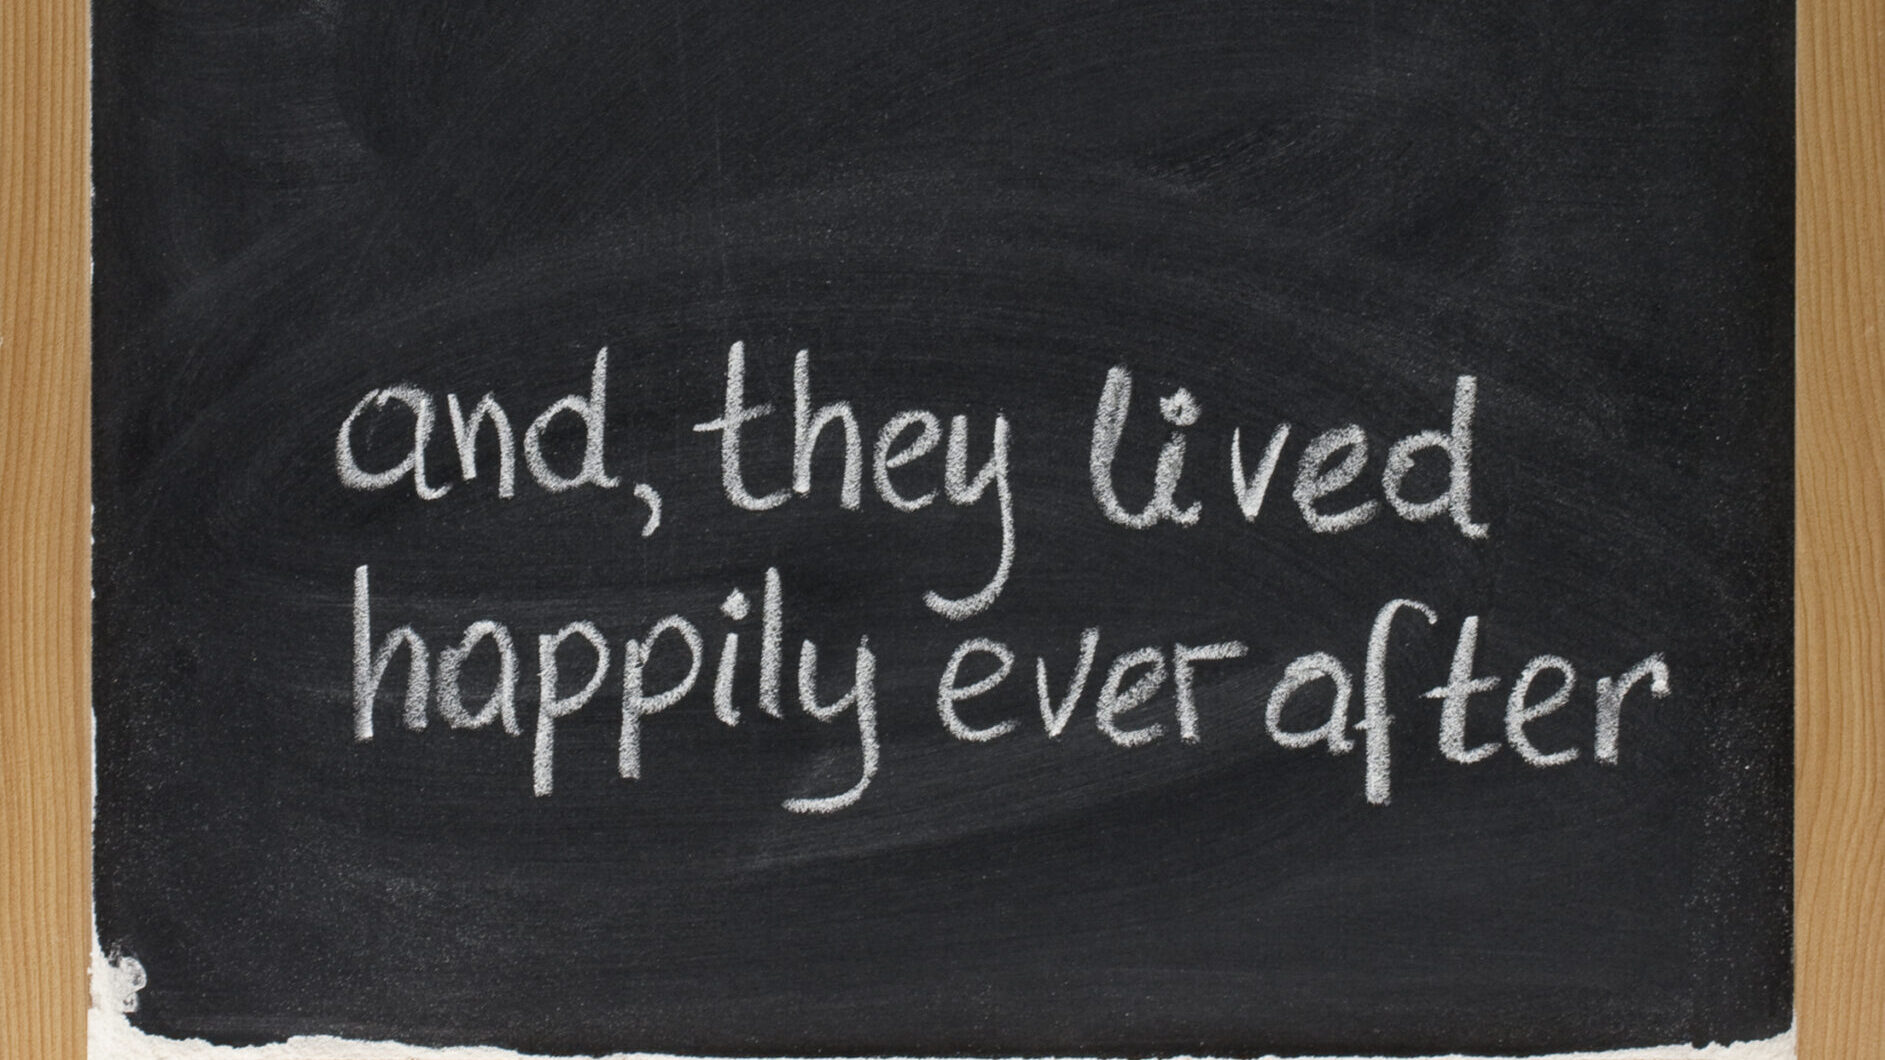 and, they lived
happily ever after